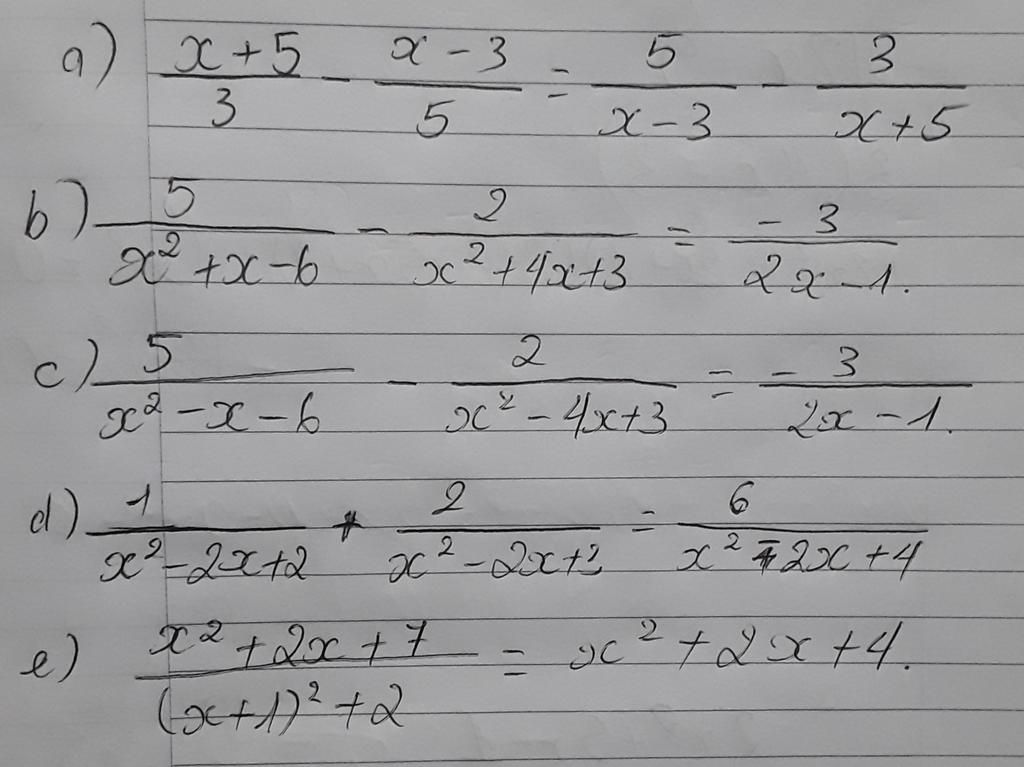 a) \frac{x+5}{3} - \frac{x-3}{5} = \frac{5}{x-3} - \frac{3}{x+5}
b) \frac{5}{x^2+x-6} - \frac{2}{x^2+4x+3} = \frac{-3}{2x-1}.
c) \frac{5}{x^2-x-6} - \frac{2}{x^2-4x+3} = \frac{-3}{2x-1}.
d) \frac{1}{x^2-2x+2} + \frac{2}{x^2-2x+3} = \frac{6}{x^2-2x+4}
e) \frac{x^2+2x+7}{(x+1)^2+2} = x^2+2x+4.